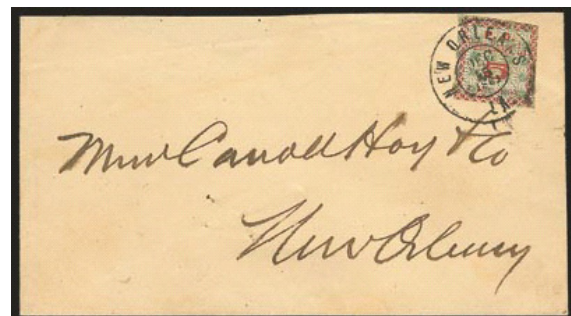 NEW ORLEANS LA
DEC
Carroll Hoy & Co
New Orleans